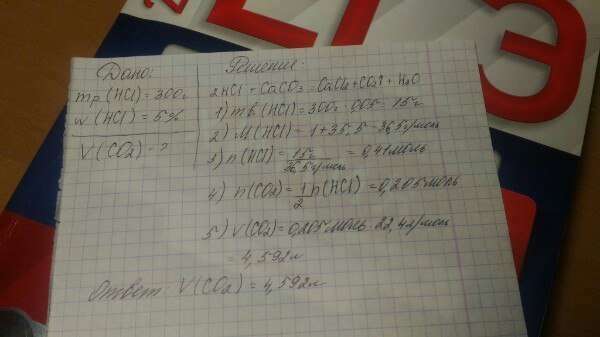 ЕГЭ
Дано:
mр(HCl)=300г
w(HCl)=5%
V(CO2)-?
Решение:
2HCl+CaCO3=CaCl2+CO2↑+H2O
1) mв(HCl)=300г·0,05=15г
2) M(HCl)=1+35,5=36,5г/моль
3) n(HCl)=15г/36,5г/моль=0,41моль
4) n(CO2)=1/2n(HCl)=0,205моль
5) V(CO2)=0,205моль·22,4л/моль
=4,592л
Ответ: V(CO2)=4,592л